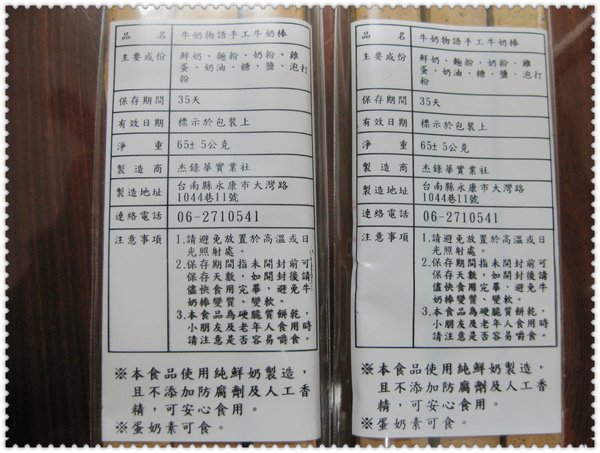 品名 牛奶物語手工牛奶棒
主要成份 鮮奶、麵粉、奶粉、雞
蛋、奶油、糖、鹽、泡打
粉
保存期間 35天
有效日期 標示於包裝上
淨重 65±5公克
製造商 杰錸華實業社
製造地址 台南縣永康市大灣路
1044巷11號
連絡電話 06-2710541
注意事項 1.請避免放置於高溫或日
光照射處。
2.保存期間指未開封前可
保存天數，如開封後請
儘快食用完畢，避免牛
奶棒變質、變軟。
3.本食品為硬脆質餅乾，
小朋友及老年人食用時
請注意是否容易嚼食。
※本食品使用純鮮奶製造，
且不添加防腐劑及人工香
精，可安心食用。
※蛋奶素可食。
品名 牛奶物語手工牛奶棒
主要成份 鮮奶、麵粉、奶粉、雞
蛋、奶油、糖、鹽、泡打
粉
保存期間 35天
有效日期 標示於包裝上
淨重 65±5公克
製造商 杰錸華實業社
製造地址 台南縣永康市大灣路
1044巷11號
連絡電話 06-2710541
注意事項 1.請避免放置於高溫或日
光照射處。
2.保存期間指未開封前可
保存天數，如開封後請
儘快食用完畢，避免牛
奶棒變質、變軟。
3.本食品為硬脆質餅乾，
小朋友及老年人食用時
請注意是否容易嚼食。
※本食品使用純鮮奶製造，
且不添加防腐劑及人工香
精，可安心食用。
※蛋奶素可食。